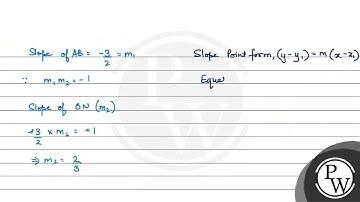 Slope of AB = -3/2 = m₁
∵ m₁ m₂ = -1
Slope of BN (m₂)
+3/2 × m₂ = +1
⇒ m₂ = 2/3
Slope Point form, (y-y₁) = m (x-x₁)
Equa
PW
PW